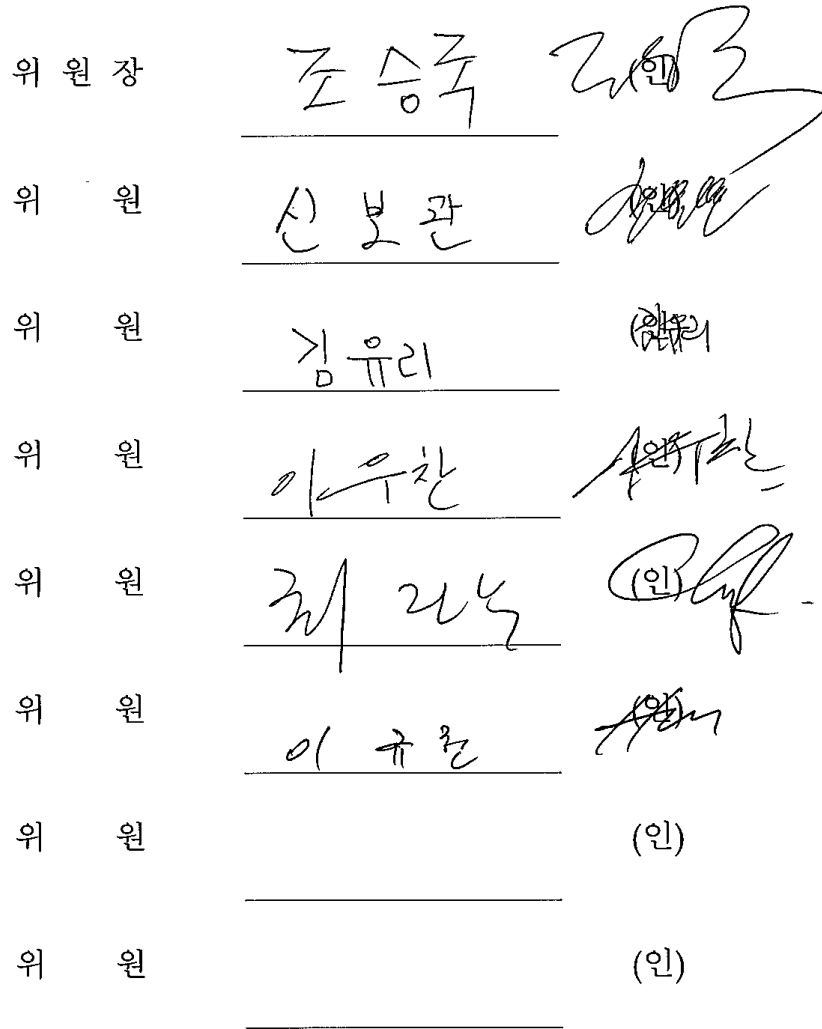 위 원 장 조 승 국 (인)
위 원 신 보 관 (인)
위 원 김 유리 (인)
위 원 이우찬 (인)
위 원 최 (인)
위 원 이 규 (인)
위 원 (인)
위 원 (인)